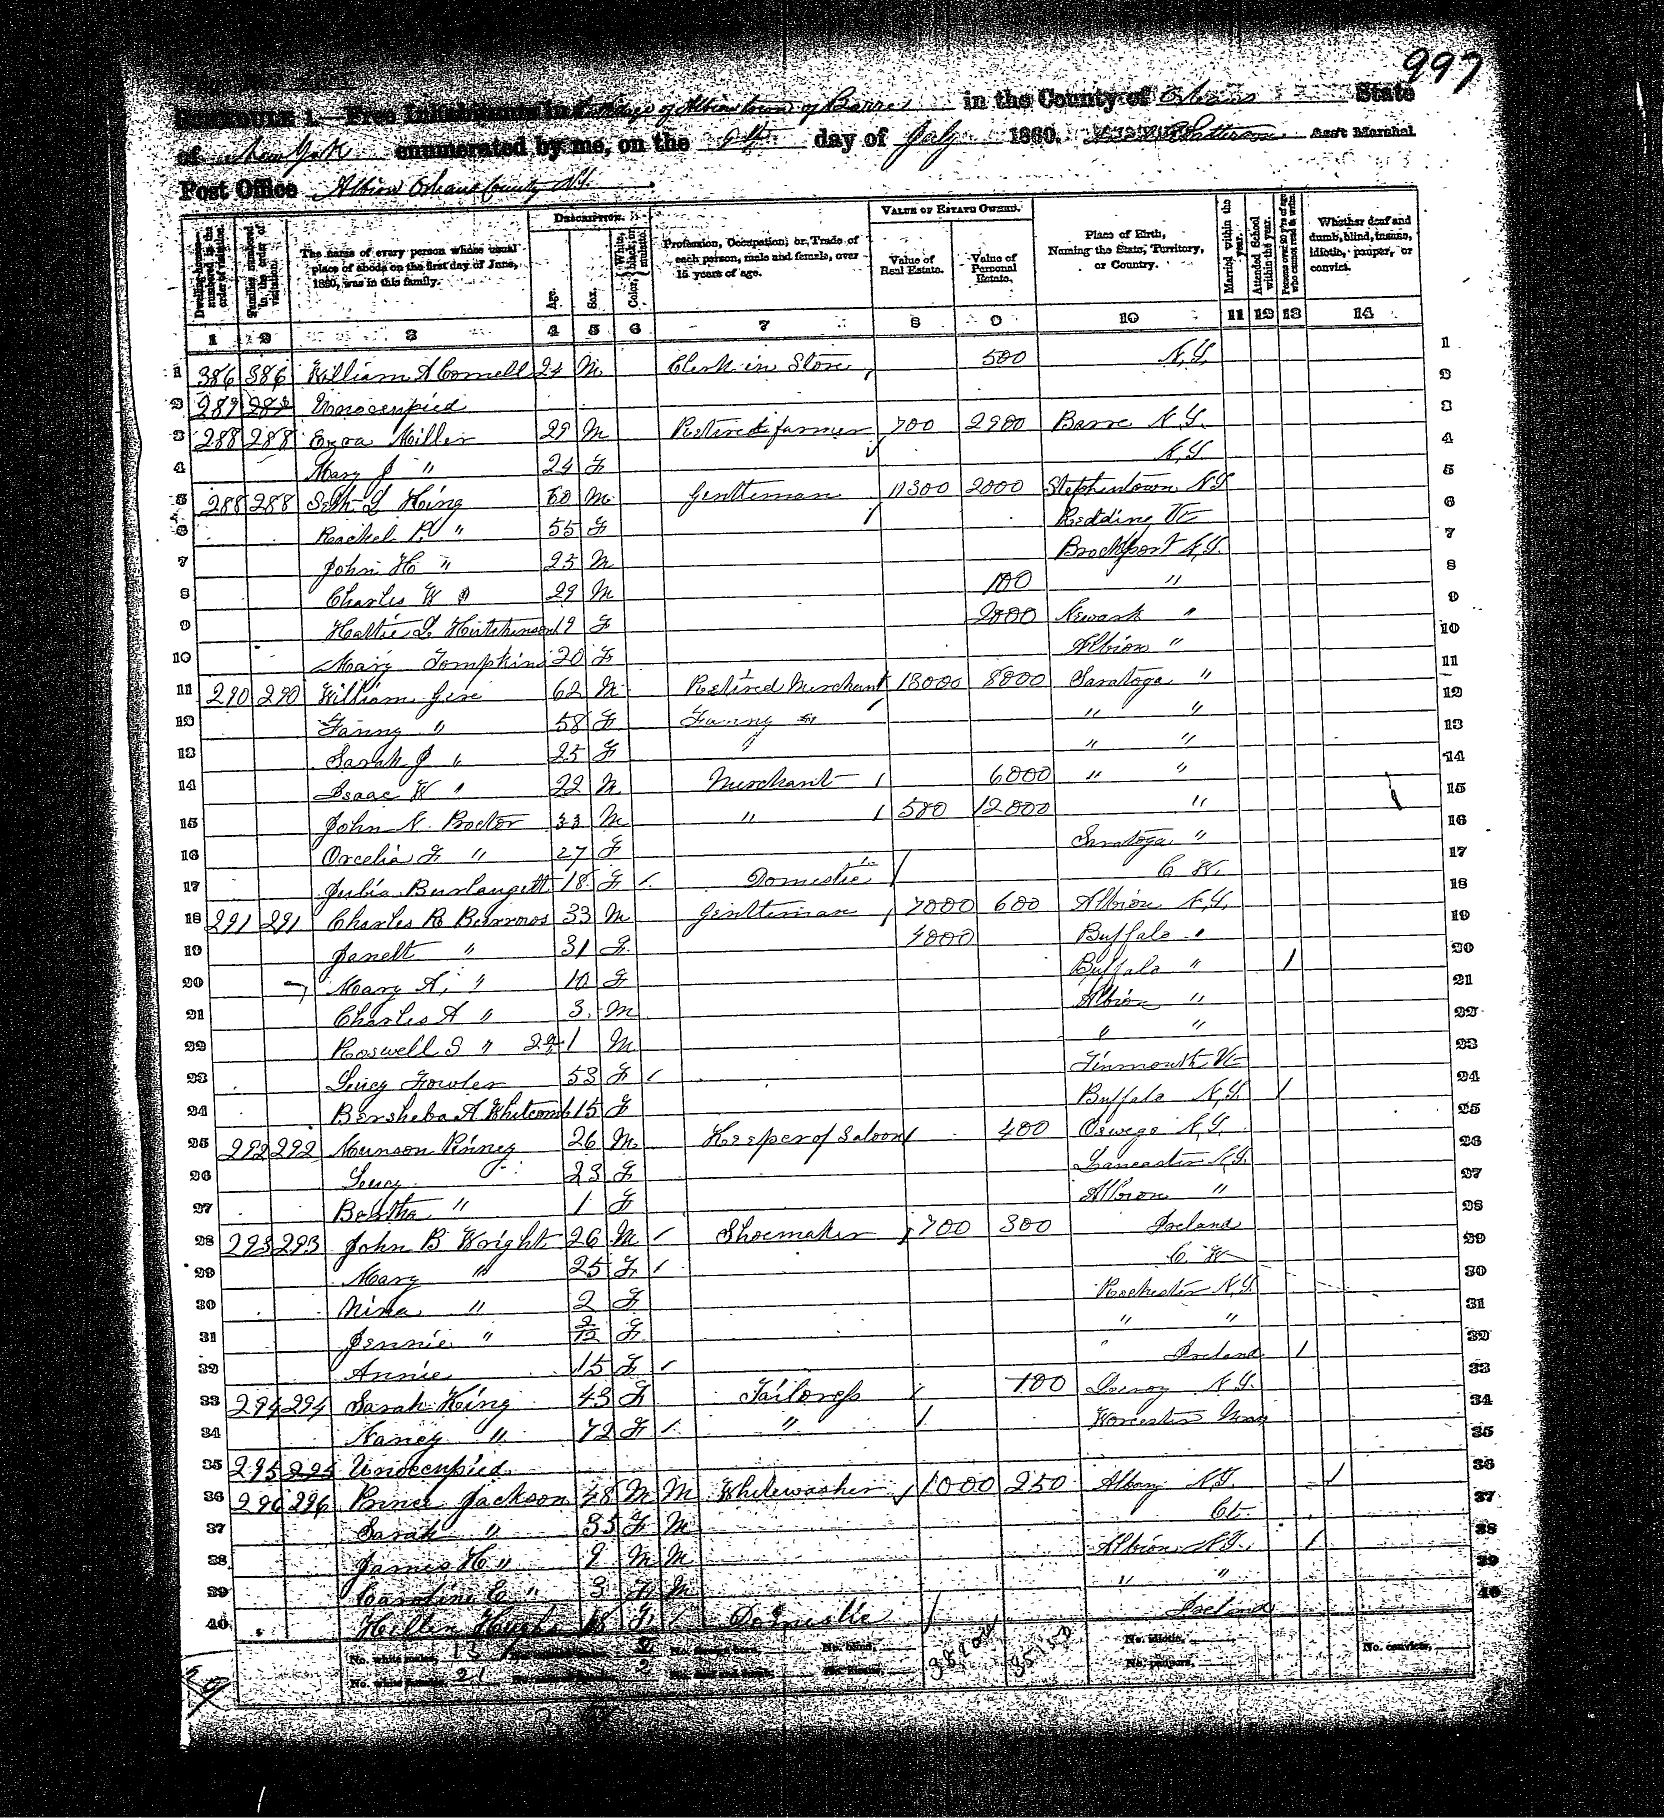 997
SCHEDULE 1.—Free Inhabitants in Village of Albion town of Barre in the County of Orleans State
of New York enumerated by me, on the day of July 1860. Ass't Marshal
Post Office Albion Orleans County N.Y.
DESCRIPTION. VALUE OF ESTATE OWNED.
Dwelling-houses numbered in the order of visitation. Families numbered in the order of visitation. The name of every person whose usual place of abode on the first day of June, 1860, was in this family. Age. Sex. Color, { White, black, or mulatto. Profession, Occupation, or Trade of each person, male and female, over 15 years of age. Value of Real Estate. Value of Personal Estate. Place of Birth, Naming the State, Territory, or Country. Married within the year. Attended School within the year. Persons over 20 y'rs of age who cannot read & write. Whether deaf and dumb, blind, insane, idiotic, pauper, or convict.
1 2 3 4 5 6 7 8 9 10 11 12 13 14
1 386 386 William A Cornell 24 M Clerk in Store 500 N.Y. 1
2 Unoccupied 2
3 288 288 Ezra Miller 29 M Retired farmer 700 2900 Barre N.Y. 3
4 Mary J " 24 F N.Y. 4
5 288 288 Seth L King 60 M Gentleman 11300 2000 Stephentown N.Y 5
6 Rachel P. " 55 F Redding Vt 6
7 John H " 23 M Brockport N.Y. 7
8 Charles W " 29 M 100 " 8
9 Hattie L. Hutchinson 19 F 2000 Newark " 9
10 Mary Tompkins 20 F Albion " 10
11 290 290 William Gere 62 M Retired Merchant 13000 8000 Saratoga " 11
12 Fanny " 58 F Fanny " " 12
13 Sarah J " 25 F " " " 13
14 Isaac W " 22 M Merchant 6000 " " 14
15 John N. Proctor 33 M " 500 12000 " 15
16 Orcelia F " 27 F Saratoga " 16
17 Julia 18 F Domestic C W. 17
18 291 291 Charles R Burrows 33 M Gentleman 7000 600 Albion N.Y. 18
19 Janett " 31 F 4000 Buffalo " 19
20 Mary A. " 10 F Buffalo " / 20
21 Charles A " 3 M Albion " 21
22 Roswell S " 1 M " " 22
23 Lucy Fowler 53 F Tinmouth Vt 23
24 Bersheba A Whitcomb 15 F Buffalo N.Y. / 24
25 292 292 Munson Pinney 26 M Keeper of Saloon 400 Oswego N.Y. 25
26 Lucy 23 F Lancaster N.Y. 26
27 Bertha " 1 F Albion " 27
28 293 293 John B Wright 26 M Shoemaker 700 300 Ireland 28
29 Mary " 25 F C W 29
30 Nina " 2 F Rochester N.Y. 30
31 Jennie " 2/12 F " " 31
32 Annie 15 F Ireland / 32
33 294 294 Sarah King 43 F Tailoress 100 Leroy N.Y. 33
34 Nancy " 72 F " Worcester Mass 34
35 295 295 Unoccupied 35
36 296 296 Prince Jackson 48 M M Whitewasher 1000 250 Albany N.Y. / 36
37 Sarah " 35 F M Ct. 37
38 James H " 9 M M Albion N.Y. / 38
39 Caroline E " 3 F M " " 39
40 Hellen Hughs 18 F Domestic Ireland 40
No. white males, 13 No. blind, No. idiotic, No. convicts,
No. white females, 21 No. insane, No. paupers,